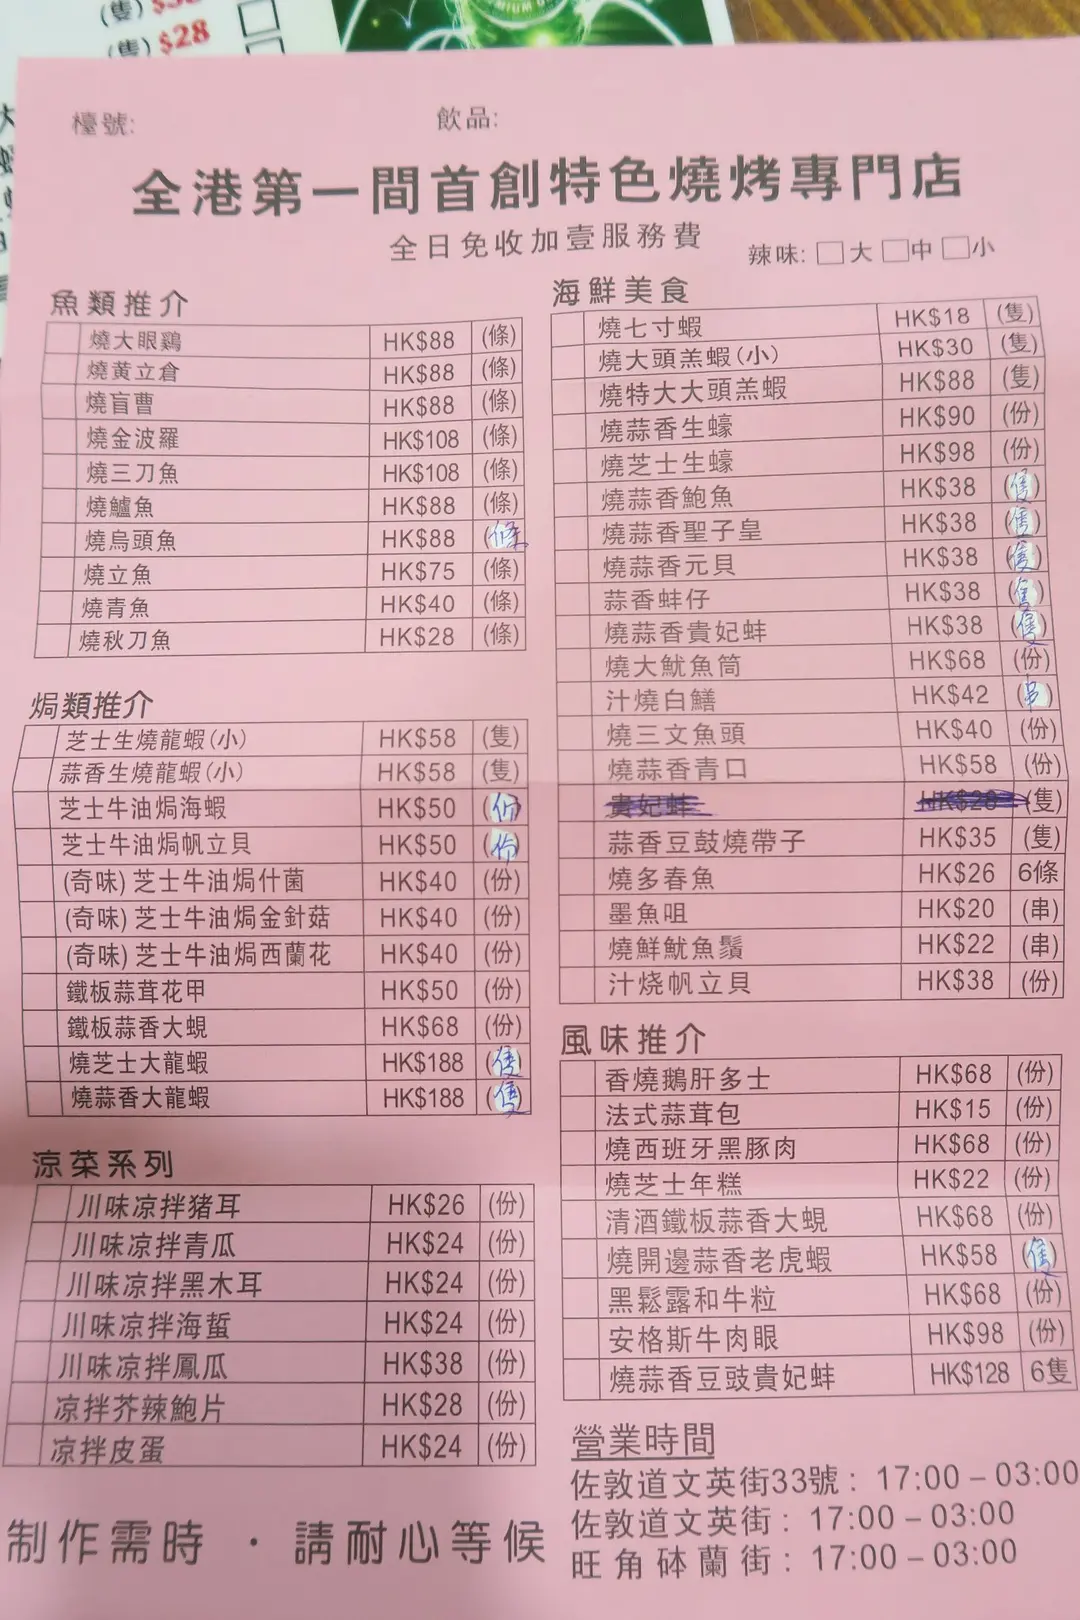 (隻)
(隻) $28
檯號:
飲品:
全港第一間首創特色燒烤專門店
全日免收加壹服務費
辣味: 大 中 小
魚類推介
燒大眼鷄 HK$88 (條)
燒黄立倉 HK$88 (條)
燒盲曹 HK$88 (條)
燒金波羅 HK$108 (條)
燒三刀魚 HK$108 (條)
燒鱸魚 HK$88 (條)
燒烏頭魚 HK$88 (條)
燒立魚 HK$75 (條)
燒青魚 HK$40 (條)
燒秋刀魚 HK$28 (條)
焗類推介
芝士生燒龍蝦(小) HK$58 (隻)
蒜香生燒龍蝦(小) HK$58 (隻)
芝士牛油焗海蝦 HK$50 (份)
芝士牛油焗帆立貝 HK$50 (份)
(奇味) 芝士牛油焗什菌 HK$40 (份)
(奇味) 芝士牛油焗金針菇 HK$40 (份)
(奇味) 芝士牛油焗西蘭花 HK$40 (份)
鐵板蒜茸花甲 HK$50 (份)
鐵板蒜香大蜆 HK$68 (份)
燒芝士大龍蝦 HK$188 (隻)
燒蒜香大龍蝦 HK$188 (隻)
涼菜系列
川味凉拌猪耳 HK$26 (份)
川味凉拌青瓜 HK$24 (份)
川味凉拌黑木耳 HK$24 (份)
川味凉拌海蜇 HK$24 (份)
川味凉拌鳳瓜 HK$38 (份)
凉拌芥辣鮑片 HK$28 (份)
凉拌皮蛋 HK$24 (份)
制作需時 · 請耐心等候
海鮮美食
燒七寸蝦 HK$18 (隻)
燒大頭羔蝦(小) HK$30 (隻)
燒特大大頭羔蝦 HK$88 (隻)
燒蒜香生蠔 HK$90 (份)
燒芝士生蠔 HK$98 (份)
燒蒜香鮑魚 HK$38 (隻)
燒蒜香聖子皇 HK$38 (隻)
燒蒜香元貝 HK$38 (隻)
蒜香蚌仔 HK$38 (隻)
燒蒜香貴妃蚌 HK$38 (隻)
燒大魷魚筒 HK$68 (份)
汁燒白鱔 HK$42 (串)
燒三文魚頭 HK$40 (份)
燒蒜香青口 HK$58 (份)
貴妃蚌 HK$28 (隻)
蒜香豆鼓燒帶子 HK$35 (隻)
燒多春魚 HK$26 6條
墨魚咀 HK$20 (串)
燒鮮魷魚鬚 HK$22 (串)
汁烧帆立貝 HK$38 (份)
風味推介
香燒鵝肝多士 HK$68 (份)
法式蒜茸包 HK$15 (份)
燒西班牙黑豚肉 HK$68 (份)
燒芝士年糕 HK$22 (份)
清酒鐵板蒜香大蜆 HK$68 (份)
燒開邊蒜香老虎蝦 HK$58 (隻)
黑鬆露和牛粒 HK$68 (份)
安格斯牛肉眼 HK$98 (份)
燒蒜香豆豉貴妃蚌 HK$128 6隻
營業時間
佐敦道文英街33號 : 17:00 – 03:00
佐敦道文英街 : 17:00 – 03:00
旺角砵蘭街 : 17:00 – 03:00